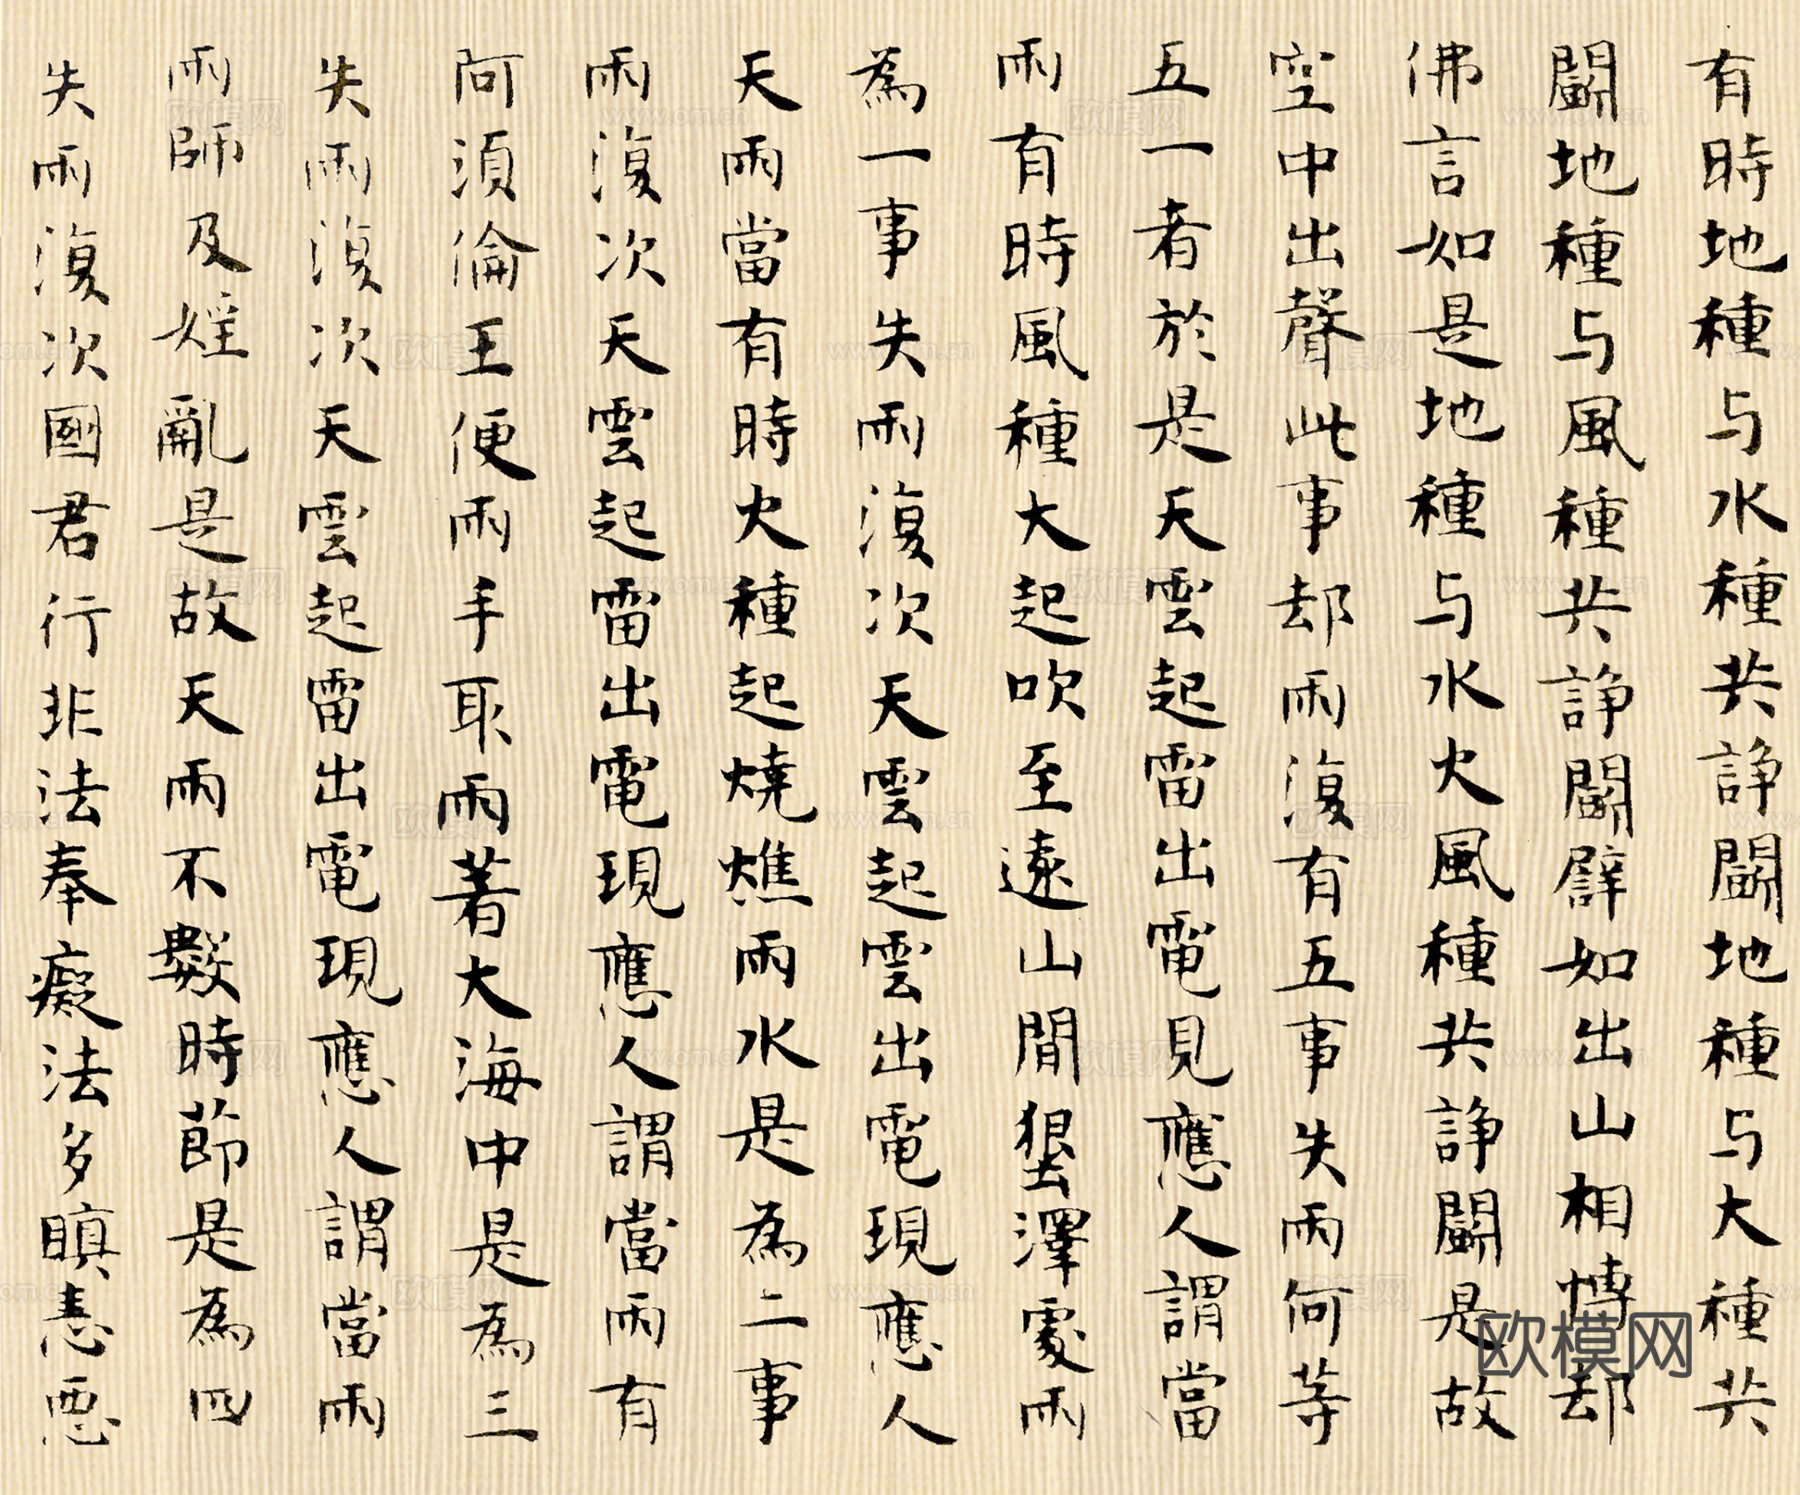 有時地種与水種共諍鬪地種与大種共
鬪地種与風種共諍鬪譬如出山相愽却
佛言如是地種与水火風種共諍鬪是故
空中出聲此事却雨復有五事失雨何等
五一者於是天雲起雷出電見應人謂當
雨有時風種大起吹至遠山間墾澤處雨
為一事失雨復次天雲起雲出電現應人
天雨當有時火種起燒燋雨水是為二事
雨復次天雲起雷出電現應人謂當雨有
阿須倫王便兩手取雨著大海中是為三
失雨復次天雲起雷出電現應人謂當雨
雨師及婬亂是故天雨不數時節是為四
失雨復次國君行非法奉癡法多瞋恚惡
欧模网